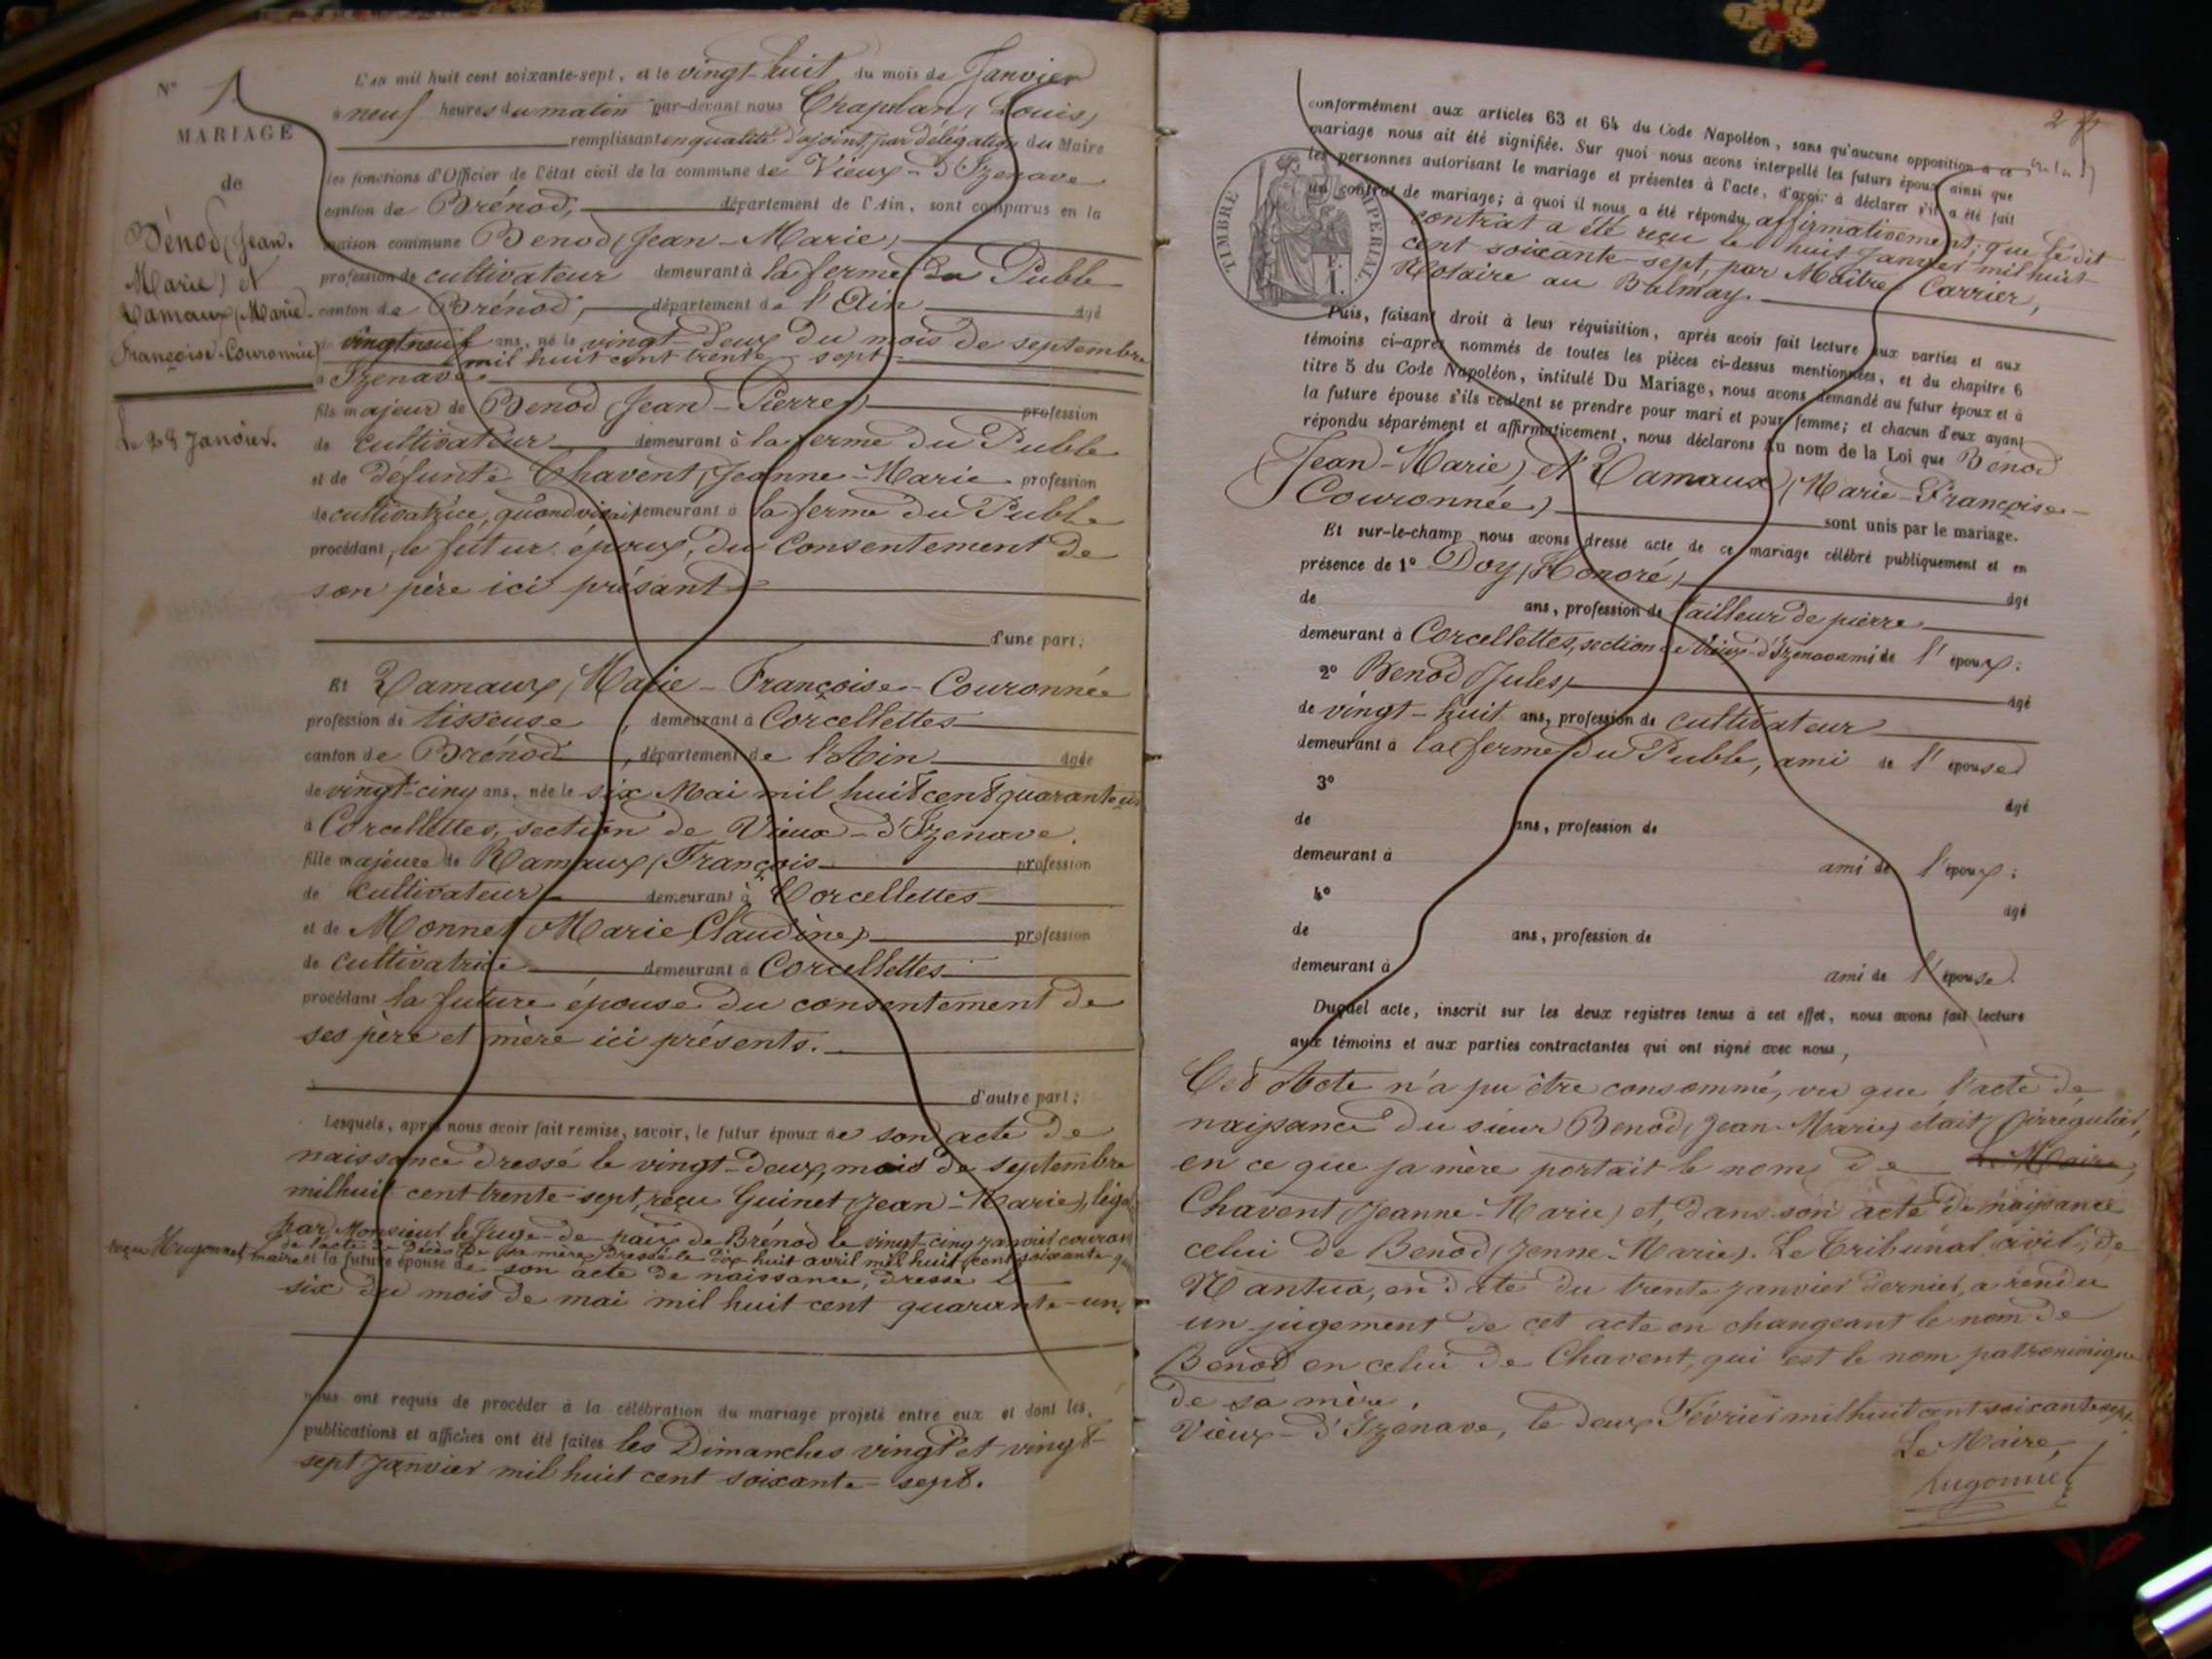 N° 1
MARIAGE
de
Bénod (Jean-
Marie) et
Ramaux (Marie-
Françoise-Couronnée)
Le 28 Janvier.
L'an mil huit cent soixante-sept, et le vingt-huit du mois de Janvier
à neuf heures du matin par-devant nous Chapelan (Louis)
remplissant en qualité d'ajoint, par délégation du Maire
les fonctions d'Officier de l'état civil de la commune de Vieux-d'Izenave
canton de Brénod, département de l'Ain, sont comparus en la
maison commune Benod (Jean-Marie)
profession de cultivateur demeurant à la ferme du Publo
canton de Brénod, département de l'Ain âgé
de vingt neuf ans, né le vingt-deux du mois de septembre
mil huit cent trente-sept
à Izenave
fils majeur de Benod (Jean-Pierre) profession
de cultivateur demeurant à la ferme du Publo
et de defunte Chavent (Jeanne-Marie profession
de cultivatrice, quand vivait demeurant à la ferme du Publo
procédant, le futur époux, du consentement de
son père ici présant
d'une part;
Et Ramaux (Marie-Françoise-Couronnée
profession de tisseuse, demeurant à Corcellettes
canton de Brénod, département de l'Ain âgée
de vingt-cinq ans, née le six Mai mil huit cent quarante un
à Corcellettes, section de Vieux-d'Izenave.
fille majeure de Ramaux (François profession
de cultivateur demeurant à Corcellettes
et de Monnet (Marie Claudine) profession
de cultivatrice demeurant à Corcellettes
procédant la future épouse du consentement de
ses père et mère ici présents.
d'autre part;
Lesquels, après nous avoir fait remise, savoir, le futur époux de son acte de
naissance dressé le vingt-deux, mois de septembre
mil huit cent trente-sept, reçu Guinet (Jean-Marie), légal
par Monsieur le Juge-de-paix de Brénod le vingt-cinq janvier courant
de l'acte de décès de sa mère, dressé le dix huit avril mil huit cent soixante
reçu Hugonnet, maire et la future épouse de son acte de naissance, dressé le
six du mois de mai mil huit cent quarante-un,
nous ont requis de procéder à la célébration du mariage projeté entre eux et dont les
publications et affiches ont été faites les Dimanches vingt et vingt-
sept Janvier mil huit cent soixante-sept.
conformément aux articles 63 et 64 du Code Napoléon, sans qu'aucune opposition à ce
mariage nous ait été signifiée. Sur quoi nous avons interpellé les futurs époux ainsi que
les personnes autorisant le mariage et présentes à l'acte, d'avoir à déclarer s'il a été fait
un contrat de mariage; à quoi il nous a été répondu affirmativement; que le dit
contrat a été reçu le huit Janvier mil huit
cent soixante-sept, par Maître Carrier,
Notaire au Balmay.
TIMBRE IMPERIAL
Puis, faisant droit à leur réquisition, après avoir fait lecture aux parties et aux
témoins ci-après nommés de toutes les pièces ci-dessus mentionnées, et du chapitre 6
titre 5 du Code Napoléon, intitulé Du Mariage, nous avons demandé au futur époux et à
la future épouse s'ils veulent se prendre pour mari et pour femme; et chacun d'eux ayant
répondu séparément et affirmativement, nous déclarons au nom de la Loi que Bénod
(Jean-Marie) et Ramaux (Marie-Françoise-
Couronnée) sont unis par le mariage.
Et sur-le-champ nous avons dressé acte de ce mariage célébré publiquement et en
présence de 1° Doy (Honoré) âgé
de ans, profession de tailleur de pierre
demeurant à Corcellettes, section de Vieux-d'Izenave ami de l'époux;
2° Benod (Jules) âgé
de vingt-huit ans, profession de cultivateur
demeurant à la ferme du Publo, ami de l'épouse
3° âgé
de ans, profession de
demeurant à ami de l'époux;
4° âgé
de ans, profession de
demeurant à ami de l'épouse.
Duquel acte, inscrit sur les deux registres tenus à cet effet, nous avons fait lecture
aux témoins et aux parties contractantes qui ont signé avec nous,
Cet Acte n'a pu être consommé, vu que l'acte de
naissance du sieur Benod (Jean-Marie) était irrégulier,
en ce que sa mère portait le nom de Le Maire,
Chavent (Jeanne-Marie) et, dans son acte de naissance
celui de Benod (Jenne-Marie). Le Tribunal civil, de
Nantua, en date du trente janvier dernier, a rendu
un jugement de cet acte en changeant le nom de
Benod en celui de Chavent, qui est le nom patronimique
de sa mère.
Vieux-d'Izenave, le deux Février mil huit cent soixante sept
Le Maire,
Hugonnet